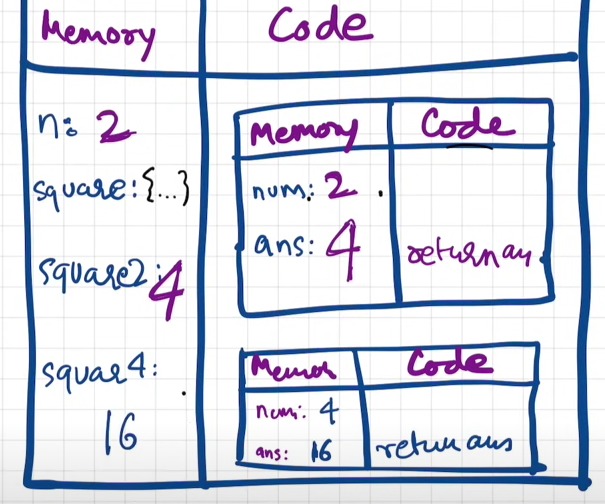 Memory Code
n: 2
square: {...}
square2: 4
squar4:
16
Memory Code
num: 2
ans: 4 return an
Memor Code
num: 4
ans: 16 return ans